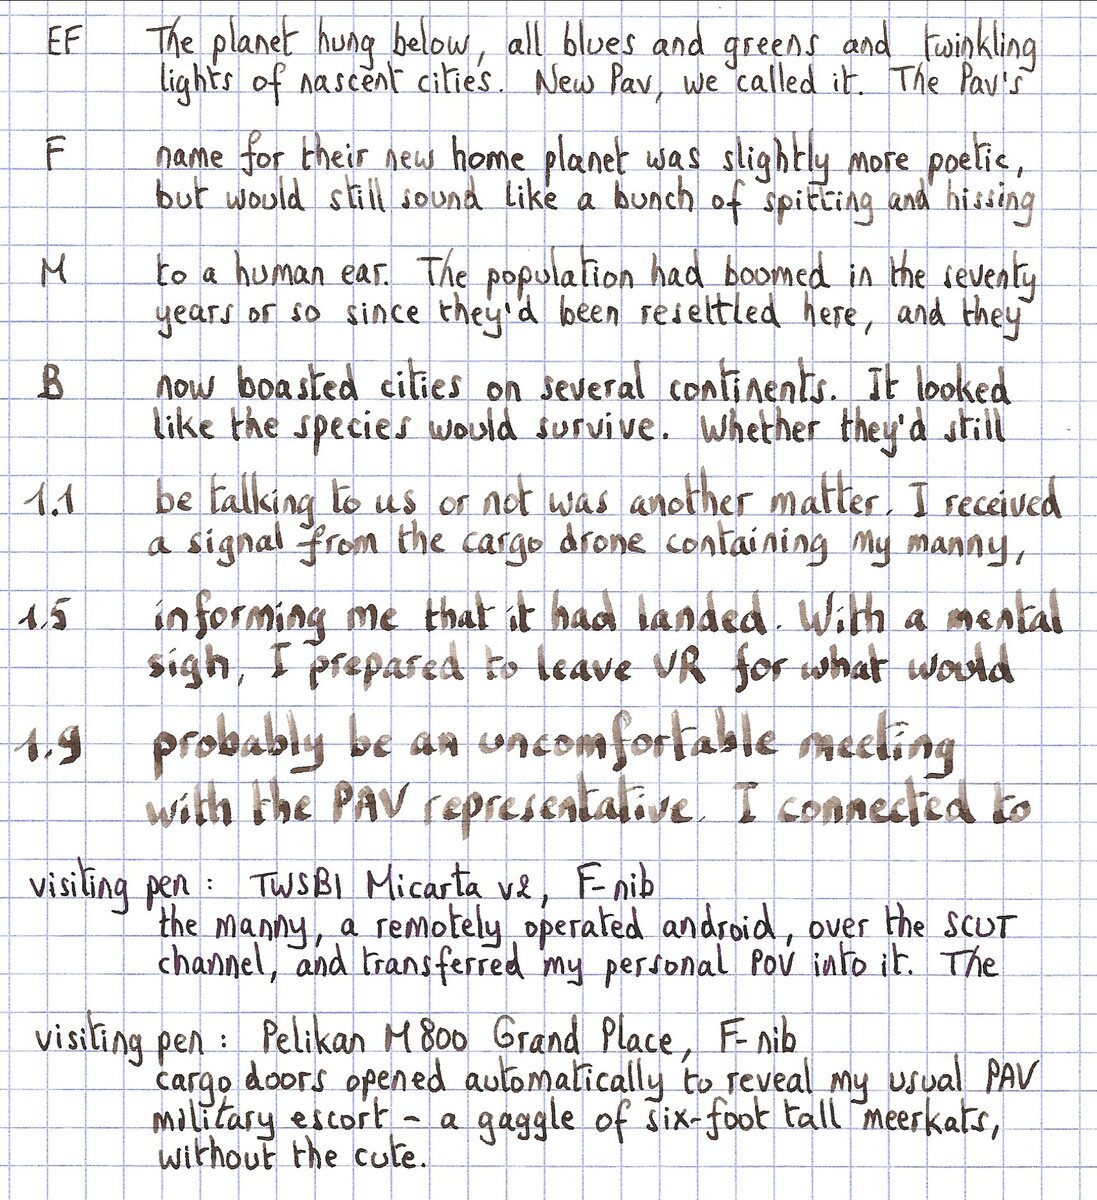 EF The planet hung below, all blues and greens and twinkling
lights of nascent cities. New Pav, we called it. The Pav's
F name for their new home planet was slightly more poetic,
but would still sound like a bunch of spitting and hissing
M to a human ear. The population had boomed in the seventy
years or so since they'd been resettled here, and they
B now boasted cities on several continents. It looked
like the species would survive. Whether they'd still
1.1 be talking to us or not was another matter. I received
a signal from the cargo drone containing my manny,
1.5 informing me that it had landed. With a mental
sigh, I prepared to leave VR for what would
1.9 probably be an uncomfortable meeting
with the PAV representative. I connected to
visiting pen : TWSBI Micarta v2, F-nib
the manny, a remotely operated android, over the SCUT
channel, and transferred my personal POV into it. The
visiting pen : Pelikan M800 Grand Place, F-nib
cargo doors opened automatically to reveal my usual PAV
military escort - a gaggle of six-foot tall meerkats,
without the cute.